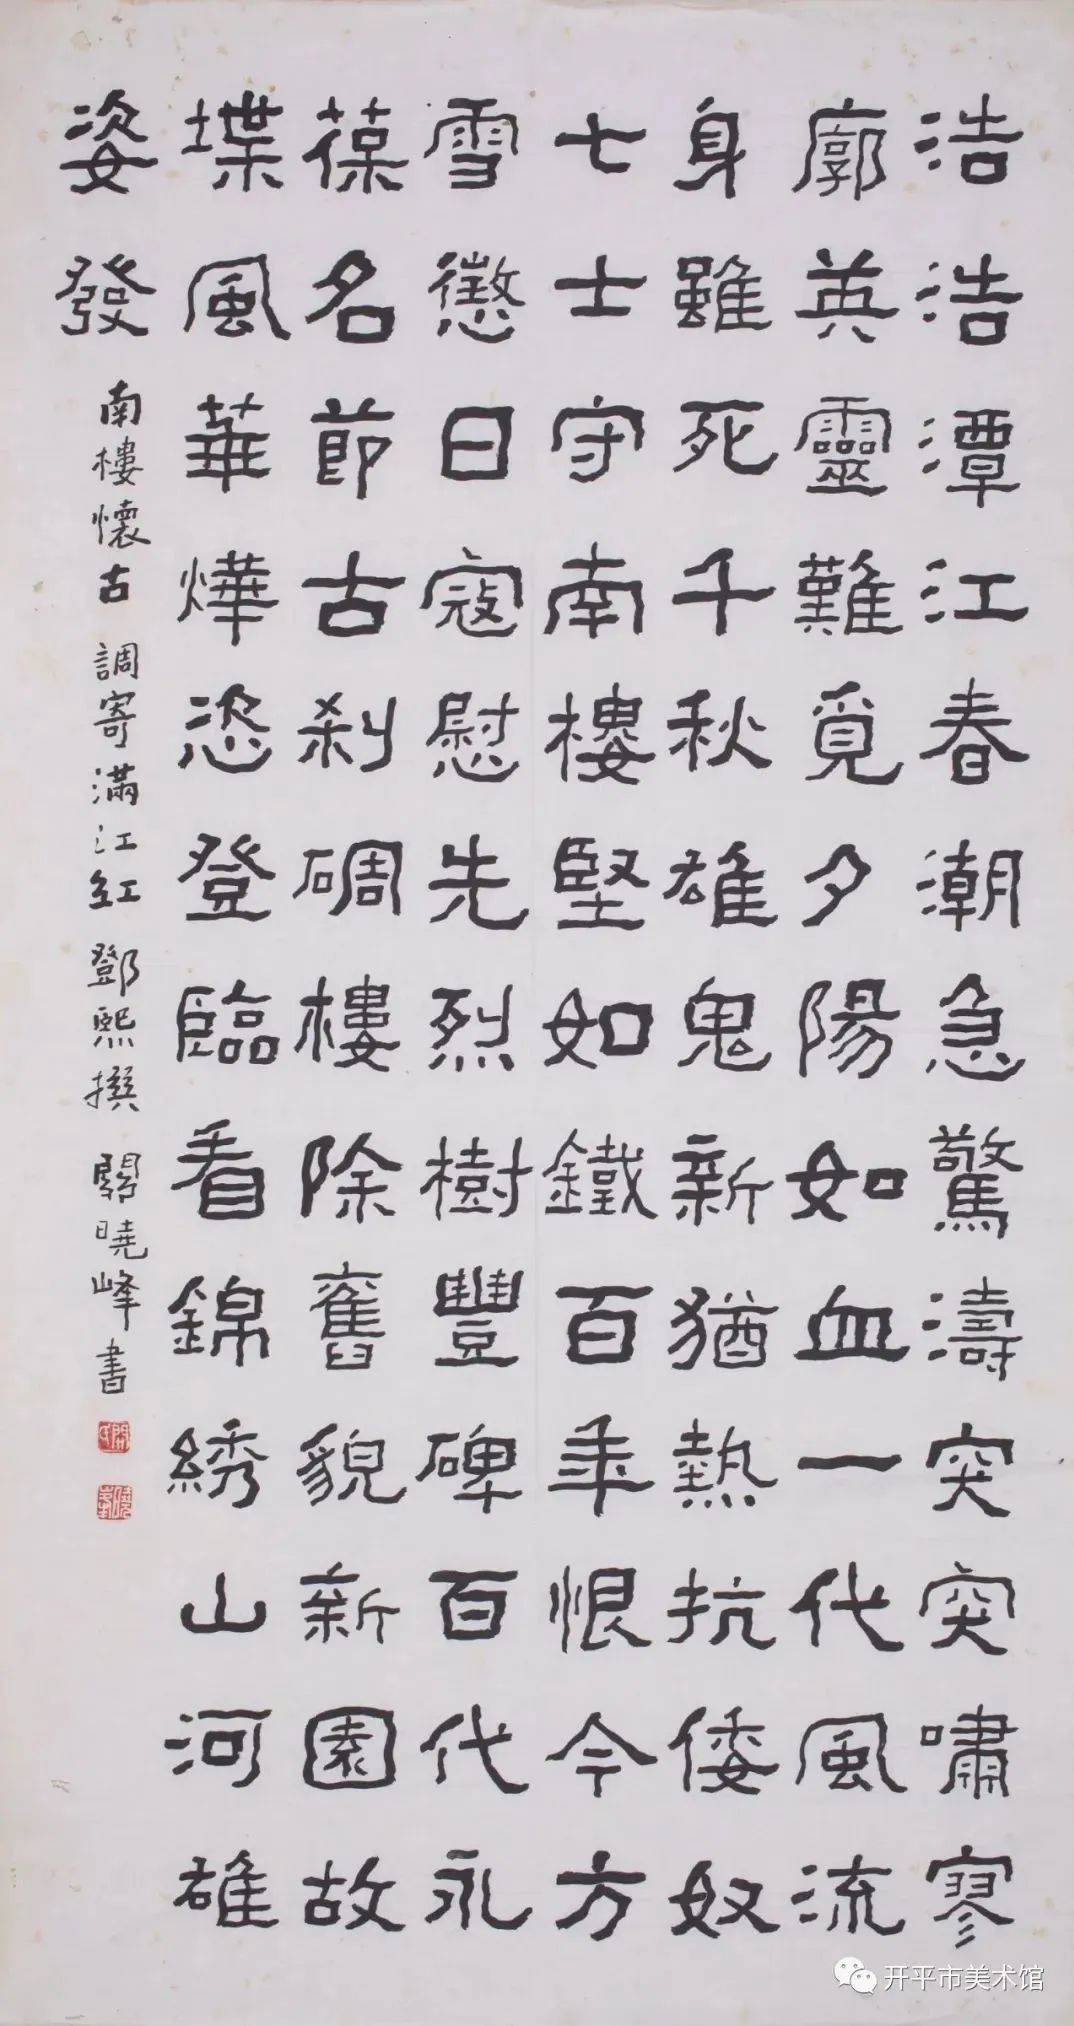 浩浩潭江春潮急驚濤突突嘯寥
廓英靈難覓夕陽如血一代風流
身雖死千秋雄鬼新猶熱抗倭奴
七士守南樓堅如鐵百年恨今方
雪懲日寇慰先烈樹豐碑百代永
葆名節古刹碉樓除舊貌新園故
堞風華燁恣登臨看錦綉山河雄
姿發
南樓懷古 調寄滿江紅 鄧熙撰 關曉峰書
开平市美术馆